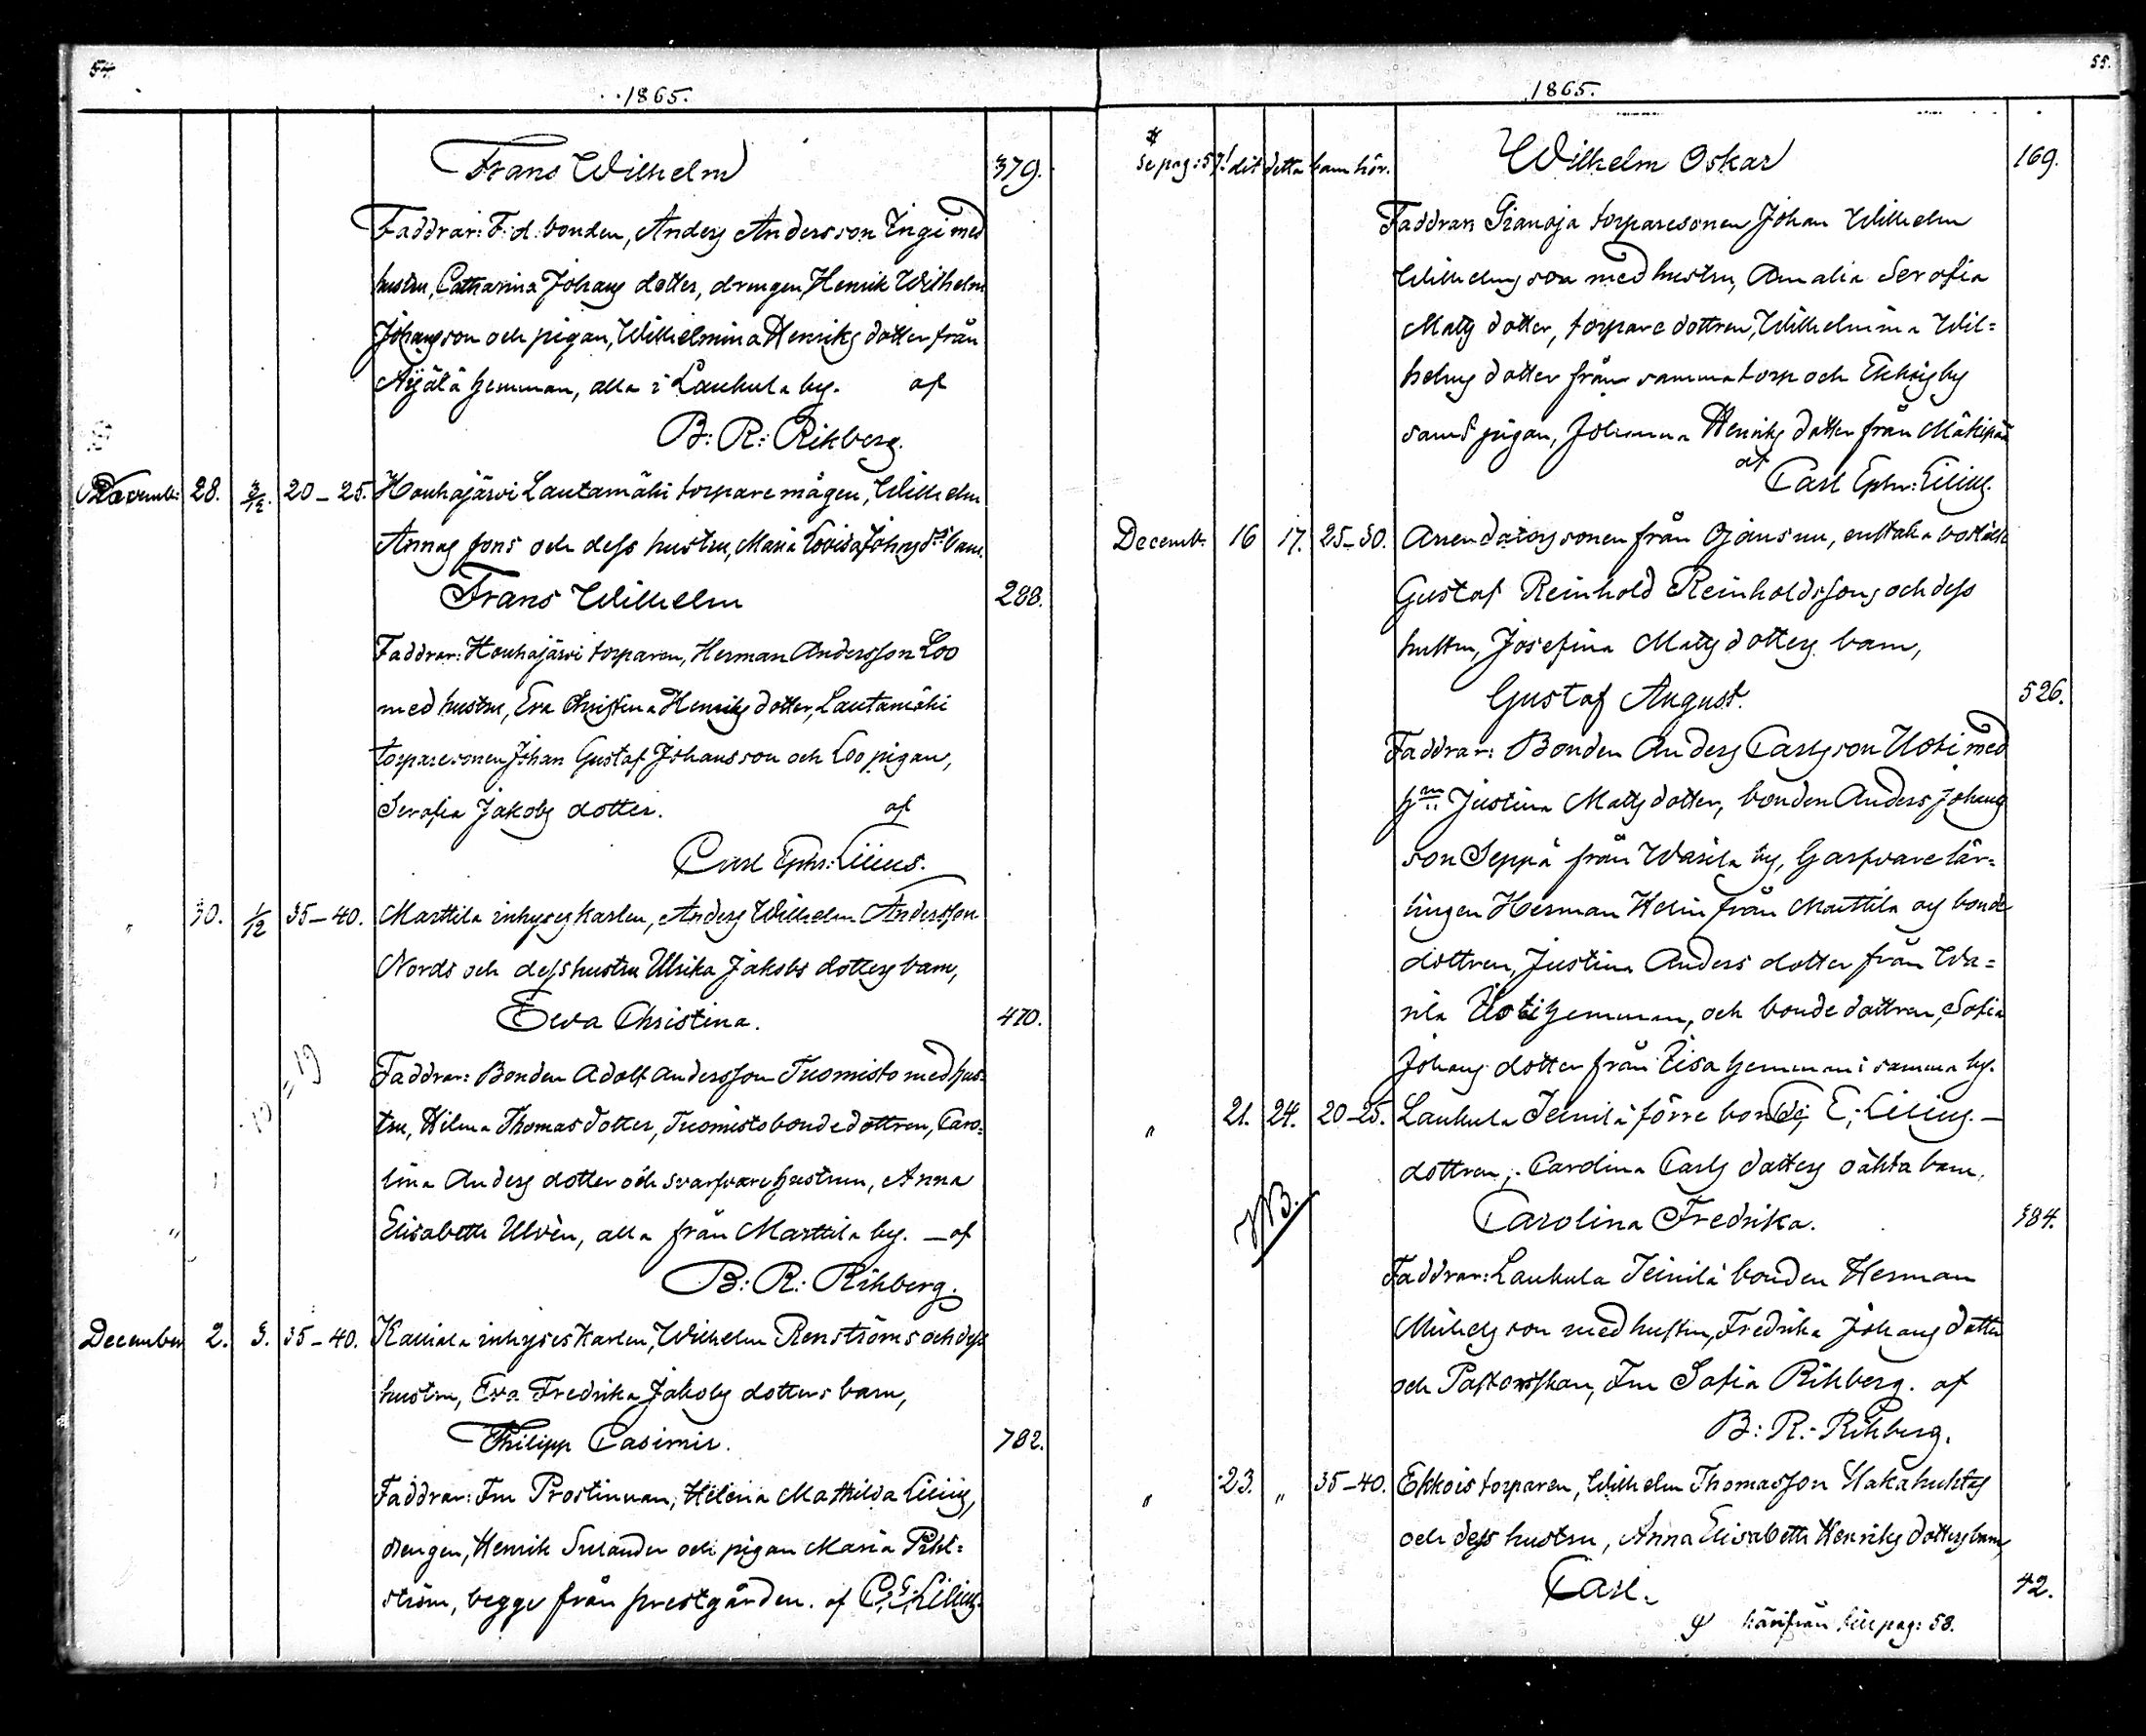 54.
1865.
Frans Wilhelm 379.
Faddrar: F. d. bonden, Anders Andersson Ingi med
hustru, Catharina Johans dotter, drengen, Henrik Wilhelm
Johansson och pigan, Wilhelmina Henriks dotter från
Äijälä hemman, alla i Laukula by. af
B: R: Rihberg.
Novemb: 28. 3/12. 20–25. Houhajärvi Lautamäki torpare mågen, Wilhelm
Annas sons och dess hustru, Maria Lovisa Johns drs barn.
Frans Wilhelm 288.
Faddrar: Houhajärvi torparen, Herman Andersson Loo
med hustru, Eva Christina Henriks dotter, Lautamäki
torparesonen Johan Gustaf Johansson och Loo pigan,
Serafia Jakobs dotter. af
Carl Ephr: Lilius.
" 30. 1/12 35–40. Marttila inhyses karlen, Anders Wilhelm Andersson
Nords och dess hustru Ulrika Jakobs dotters barn,
Eva Christina. 470.
Faddrar: Bonden Adolf Andersson Tuomisto med hus-
tru, Hilma Thomas dotter, Tuomisto bonde dottren, Caro-
lina Anders dotter och svarfvare hustrun, Anna
Elisabeth Ulvèn, alla från Marttila by. — af
B: R: Rihberg.
December 2. 3. 35–40. Kalliala inhyses karlen, Wilhelm Renströms och dess
hustru, Eva Fredrika Jakobs dotters barn,
Philipp Casimir. 782.
Faddrar: Fru Prostinnan, Helena Mathilda Lilius,
drengen, Henrik Sulander och pigan Maria Pihl-
ström, begge från prestgården. af C: E: Lilius.
55.
1865.
Se pag: 57! dit detta barn hör. Wilhelm Oskar 169.
Faddrar: torparesonen Johan Wilhelm
Wilhelmsson med hustru, Amalia Serafia
Matts dotter, torpare dottren, Wilhelmina Wil-
helms dotter från samma torp och Ekkois by
samt pigan, Johanna Henriks dotter från Mäkipää
af Carl Ephr: Lilius.
Decemb. 16 17. 25–30. Arrendatorssonen från Ojansuu, enstaka boställe
Gustaf Reinhold Reinholdssons och dess
hustru, Josefina Matts dotters barn,
Gustaf August. 526.
Faddrar: Bonden Anders Carlsson Uoti med
h:n Justina Matts dotter, bonden Anders Johans
son Seppä från Warila by, Garfvare lär-
lingen Herman Helin från Marttila by bonde
dottren, Justina Anders dotter från Wa-
rila Uoti hemman, och bonde dottren, Sofia
Johans dotter från Iisa hemman i samma by.
" 21. 24. 20–25. Laukula Teinilä förre bonde C; E; Lilius. —
dottren, Carolina Carls dotters oäkta barn.
NB. Carolina Fredrika. 384.
Faddrar: Laukula Teinilä bonden Herman
Michelsson med hustru, Fredrika Johans dotter
och Pastorskan, Fru Sofia Rihberg. af
B: R: Rihberg.
" 23. " 35–40. Ekkois torparen, Wilhelm Thomasson Hakahuhtas
och dess hustru, Anna Elisabeth Henriks dotters barn,
Carl. 42.
härifrån till pag: 58.